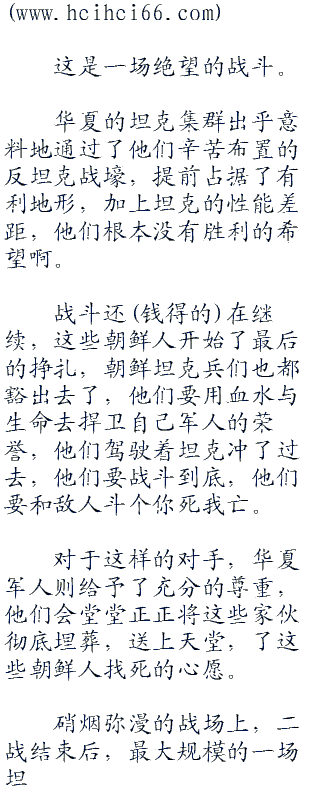 (www.hcihci66.com)
这是一场绝望的战斗。
华夏的坦克集群出乎意
料地通过了他们辛苦布置的
反坦克战壕，提前占据了有
利地形，加上坦克的性能差
距，他们根本没有胜利的希
望啊。
战斗还(钱得的)在继
续，这些朝鲜人开始了最后
的挣扎，朝鲜坦克兵们也都
豁出去了，他们要用血水与
生命去捍卫自己军人的荣
誉，他们驾驶着坦克冲了过
去，他们要战斗到底，他们
要和敌人斗个你死我亡。
对于这样的对手，华夏
军人则给予了充分的尊重，
他们会堂堂正正将这些家伙
彻底埋葬，送上天堂，了这
些朝鲜人找死的心愿。
硝烟弥漫的战场上，二
战结束后，最大规模的一场
坦